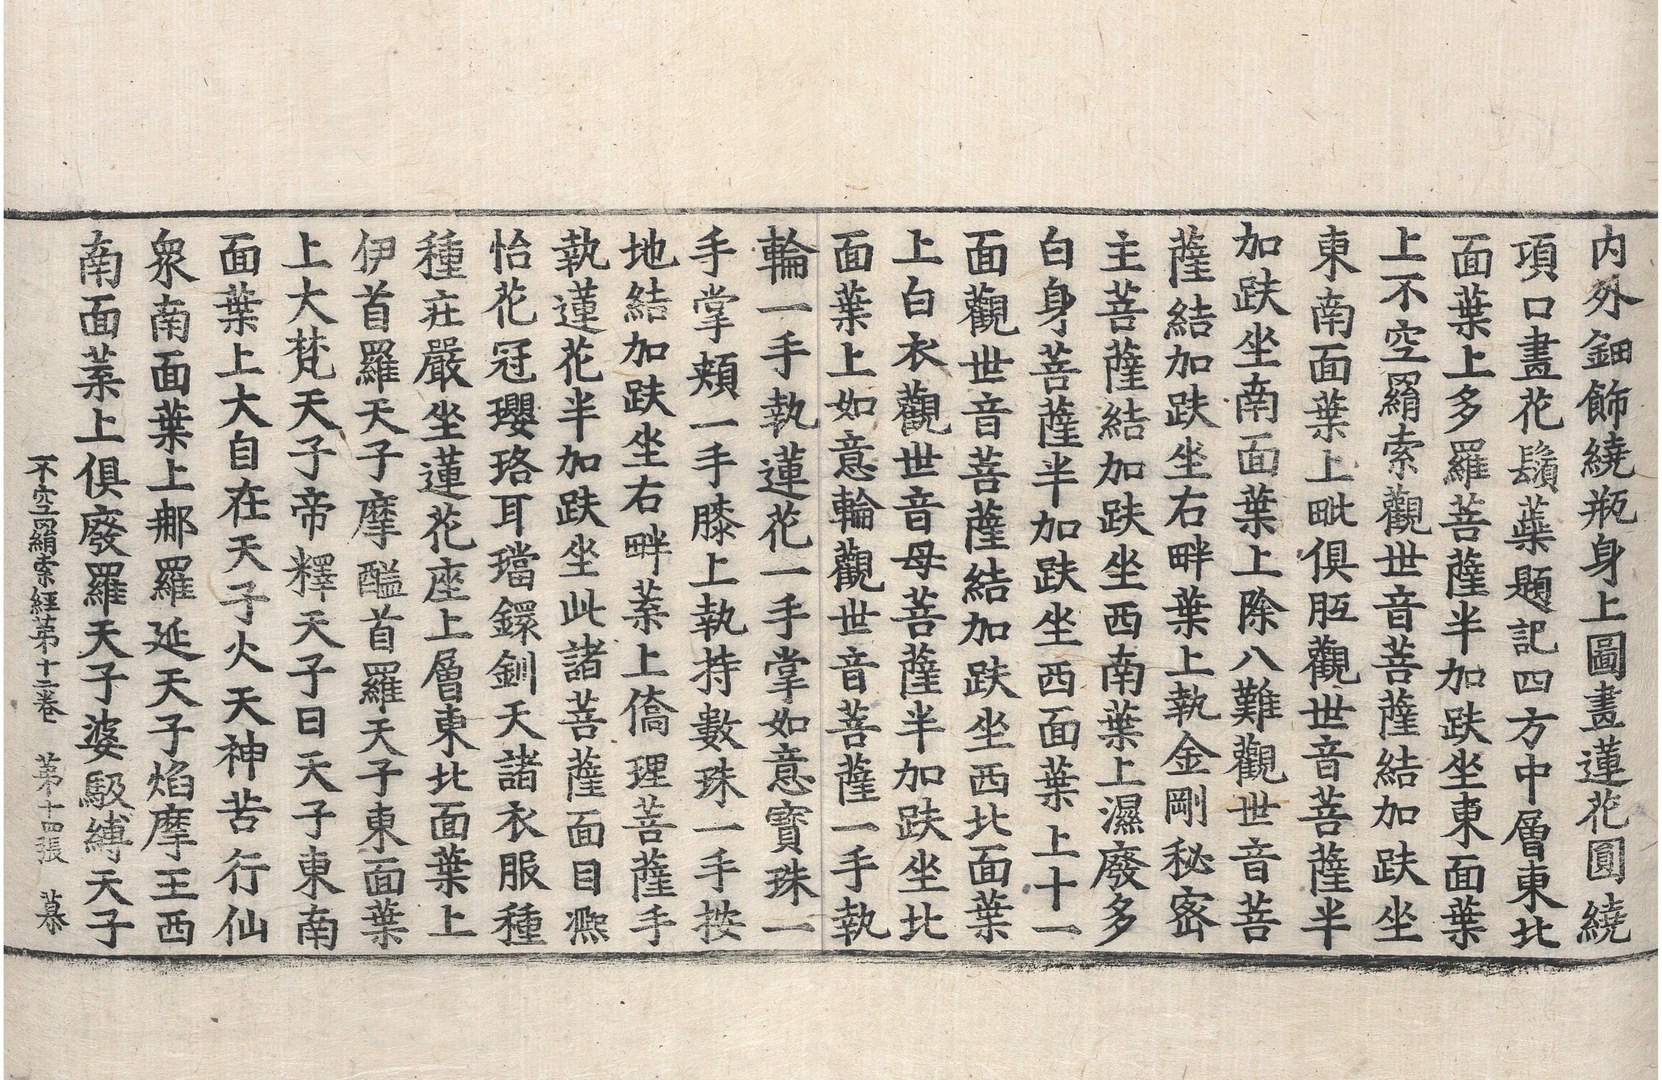 内外鈿飾繞瓶身上圖畫蓮花圓繞
項口畫花鬚蘂題記四方中層東北
面葉上多羅菩薩半加趺坐東面葉
上不空羂索觀世音菩薩結加趺坐
東南面葉上毗俱胝觀世音菩薩半
加趺坐南面葉上除八難觀世音菩
薩結加趺坐右畔葉上執金剛秘密
主菩薩結加趺坐西南葉上濕廢多
白身菩薩半加趺坐西面葉上十一
面觀世音菩薩結加趺坐西北面葉
上白衣觀世音母菩薩半加趺坐北
面葉上如意輪觀世音菩薩一手執
輪一手執蓮花一手掌如意寶珠一
手掌頰一手膝上執持數珠一手按
地結加趺坐右畔葉上僑理菩薩手
執蓮花半加趺坐此諸菩薩面目熈
怡花冠瓔珞耳璫鐶釧天諸衣服種
種莊嚴坐蓮花座上層東北面葉上
伊首羅天子摩醯首羅天子東面葉
上大梵天子帝釋天子日天子東南
面葉上大自在天子火天神苦行仙
衆南面葉上那羅延天子焰摩王西
南面葉上俱廢羅天子婆馺縛天子
不空羂索經第十二卷　第十四張　慕